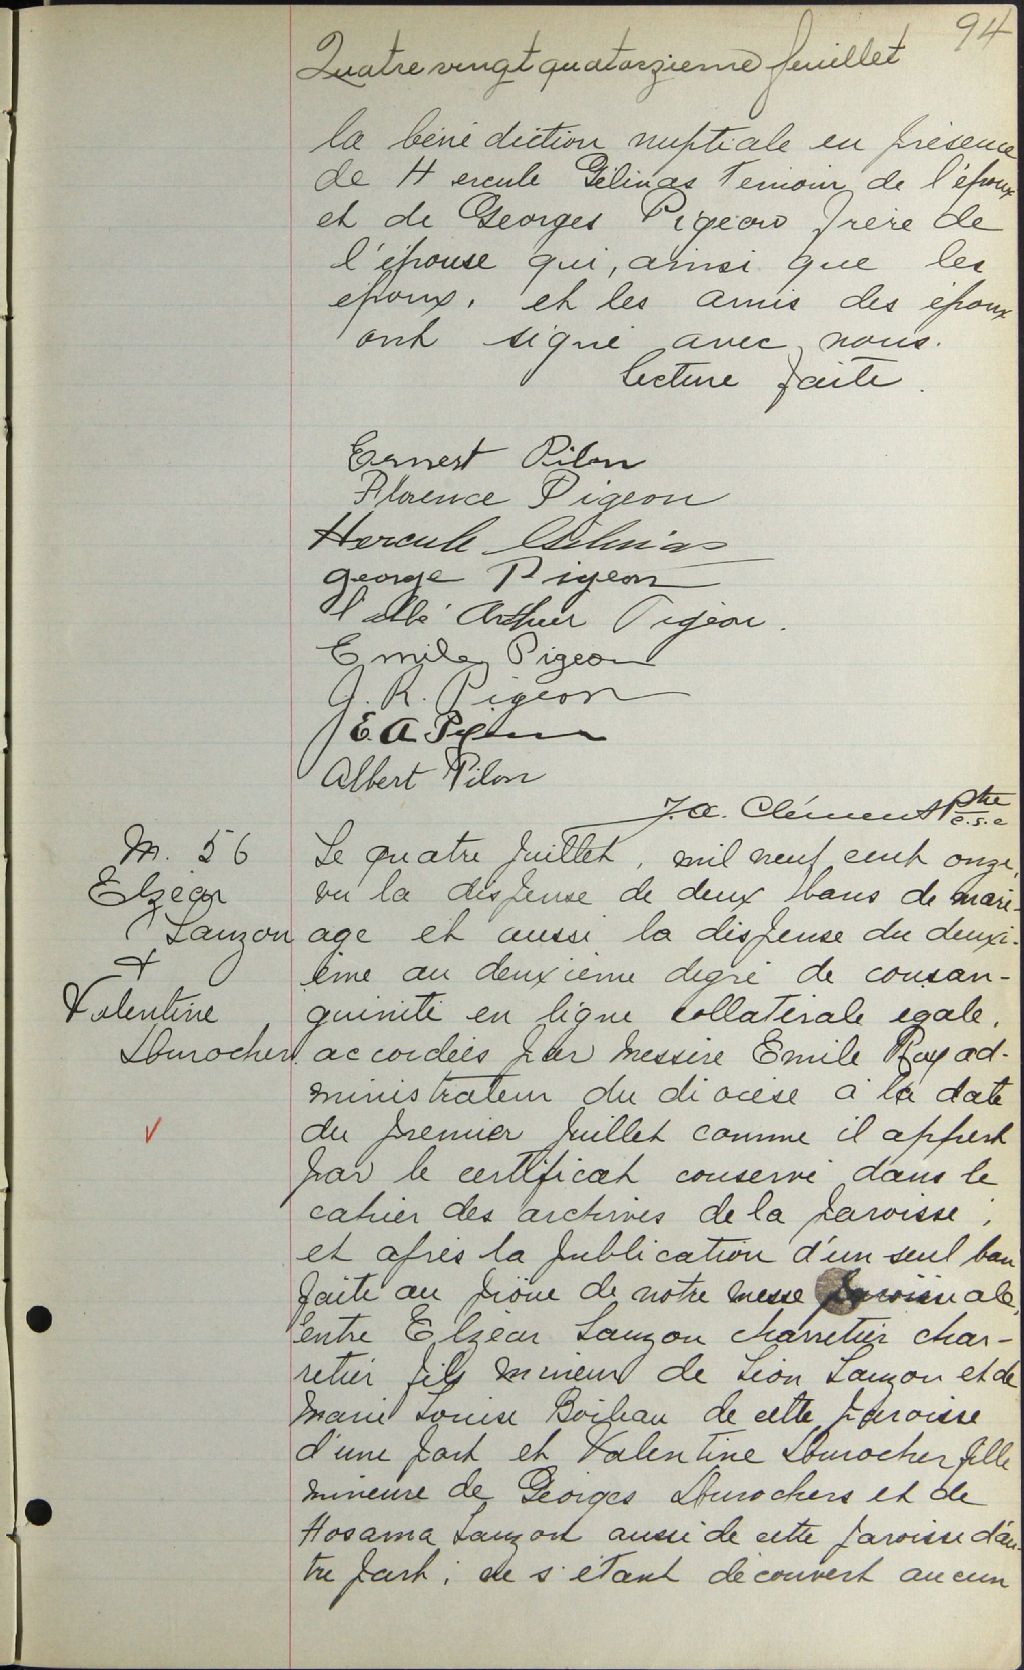 94
Quatre vingt quatorzieme feuillet
la béné diction nuptiale en présence
de Hercule Gélinas Temoin de l'époux
et de Georges Pigeon frère de
l'épouse qui, ainsi que les
époux, et les amis des époux
ont signé avec nous.
lecture faite.
Ernest Pilon
Florence Pigeon
Hercule Gélinas
George Pigeon
l'abbé Arthur Pigeon.
Emile Pigeon
J. R. Pigeon
J E. A Pigeon
Albert Pilon
J. A. Clément Ptre
c.s.c
M. 56
Elzéar
Lauzon
+
Valentine
Durocher
Le quatre juillet, mil neuf cent onze,
vu la dispense de deux bans de mari-
age et aussi la dispense du deuxi-
ème au deuxième degré de consan-
guinité en ligne collatérale égale,
accordées par Messire Emile Roy ad-
ministrateur du diocèse à la date
du premier juillet comme il appert
par le certificat conservé dans le
cahier des archives de la paroisse;
et après la publication d'un seul ban
faite au prône de notre messe paroissiale,
entre Elzéar Lauzon charretier char-
retier fils mineur de Léon Lauzon et de
Marie Louise Boileau de cette paroisse
d'une part et Valentine Durocher fille
mineure de Georges Durochers et de
Hosama Lauzon aussi de cette paroisse d'au-
tre part; ne s'étant découvert aucun